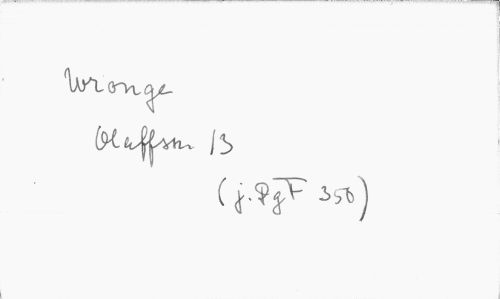 Wronge
Olaffson 13
(j. PgF 350)